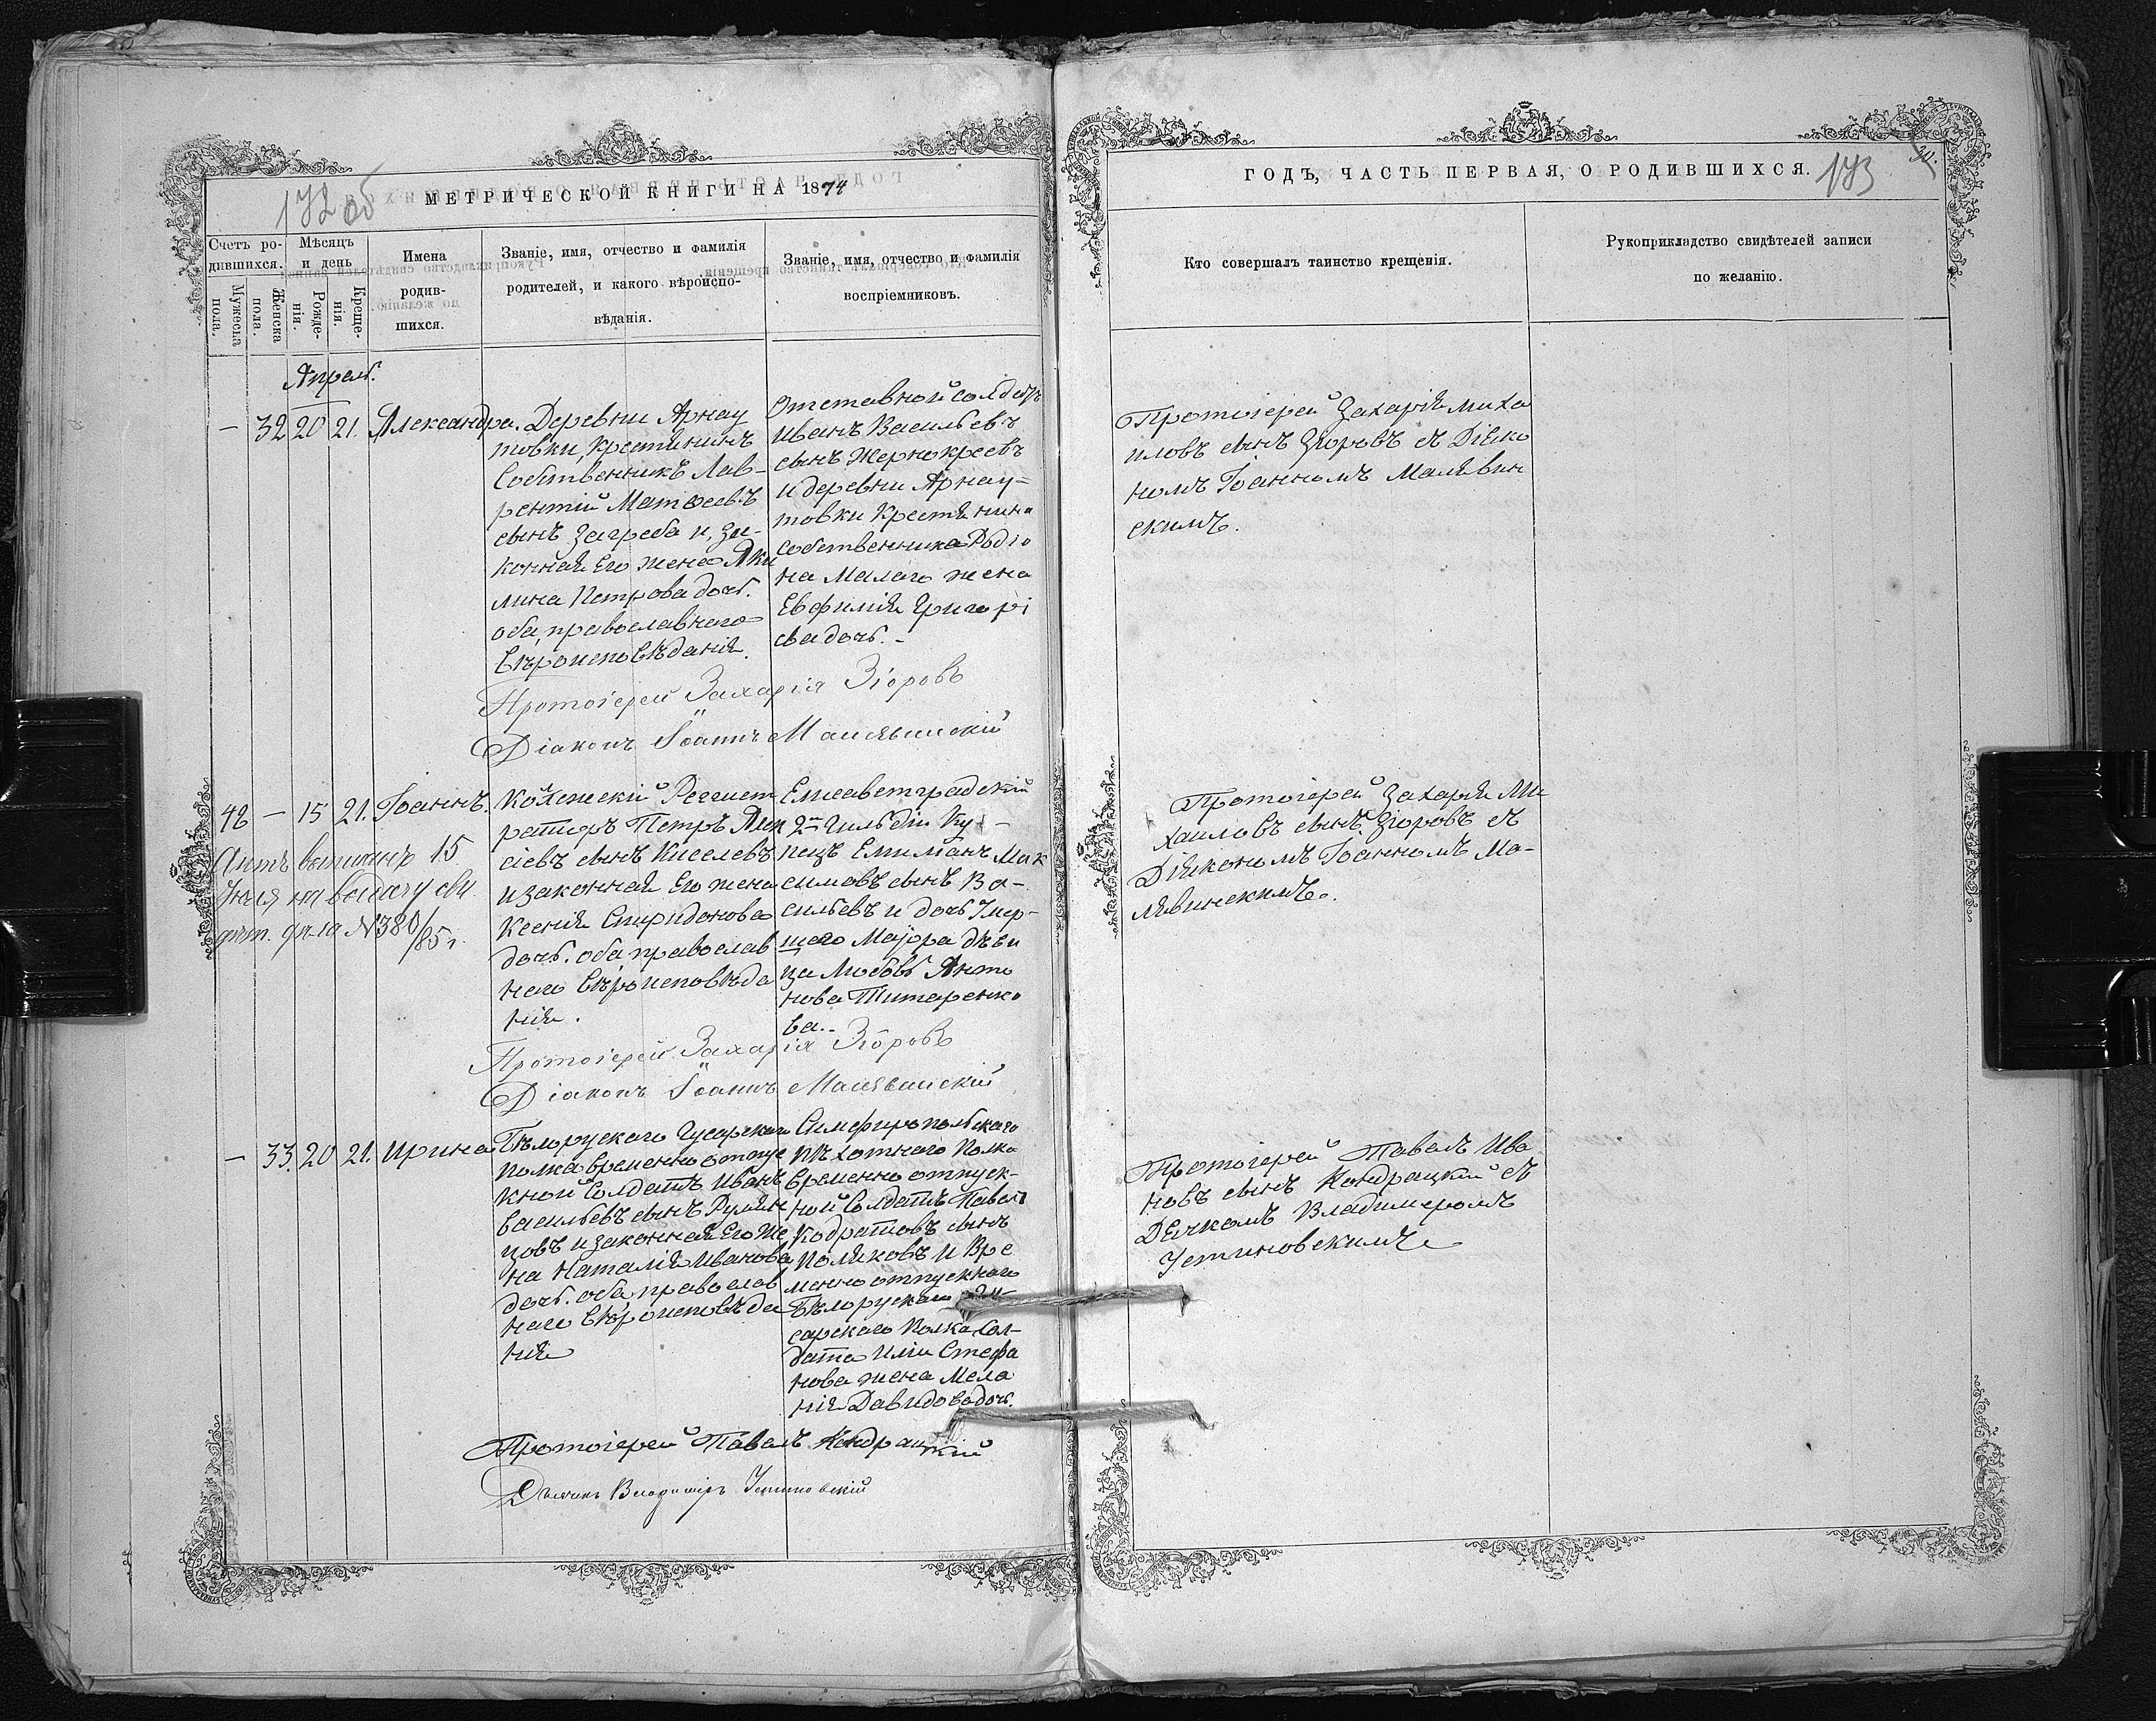 172 об
МЕТРИЧЕСКОЙ КНИГИ НА 1874
Счетъ ро-
дившихся.
Мужеска
пола.
Женска
пола.
Мѣсяцъ
и день
Рожде-
нія.
Креще-
нія.
Имена
родив-
шихся.
Званіе, имя, отчество и фамилія
родителей, и какого вѣроиспо-
вѣданія.
Званіе, имя, отчество и фамилія
воспріемниковъ.
Апрель.
— 32 20 21. Александра.
Деревни Арнау
товки, Крестьянинъ
Собственникъ Лав-
рентій Матѳеевъ
сынъ Загреба и, за-
конная Его жена Аки
лина Петрова дочь.
оба, православнаго
вѣроисповѣданія.
Отставной солдатъ
Иванъ Васильевъ
сынъ Жернокреевъ
и деревни Арнау=
товки Крестьянина
собственника Родіо
на Малаго жена
Евфимія Григорі
ева дочь. -
Протоіерей Захарія Зіоровъ
Діаконъ Іоаннъ Малявинскій
42 — 15 21. Іоаннъ.
15
№ 380/85 г.
Колежскій Регист
раторъ Петръ Алек
сіевъ сынъ Киселевъ
и законная Его жена
Ксенія Спиридонова
дочь. оба православ
наго вѣроисповѣда
нія.
Елисаветградскій
2й Гильдіи Ку-
пецъ Емиліанъ Мак
симовъ сынъ Ва-
сильевъ и дочь Умер-
шаго Маіора дѣви
ца Любовь Анто
нова Титаренко
ва. -
Протоіерей Захарія Зіоровъ
Діаконъ Іоаннъ Малявинскій
— 33. 20 21. Ирина
Бѣлорускаго Гусарскаго
полка временно отпус
кной Солдатъ Иванъ
Васильевъ сынъ Румян
цовъ и законная Его Же
на Наталія Иванова
дочь. оба православ
наго вѣроисповѣда
нія
Симферопольскаго
пѣхотнаго Полка
временно отпуск-
ной Солдатъ Павелъ
Кодратовъ сынъ
Поляковъ и Вре
менно отпускнаго
Бѣлорускаго Гу-
сарскаго Полка Сол-
дата Иліи Стефа
нова жена Мела
нія Давидова дочь.
Протоіерей Павелъ Кондрацкій
Дьячокъ Владиміръ Устиновскій
ГОДЪ, ЧАСТЬ ПЕРВАЯ, О РОДИВШИХСЯ.
173
30.
Кто совершалъ таинство крещенія.
Рукоприкладство свидѣтелей записи
по желанію.
Протоіерей Захарія Миха
иловъ сынъ Зіоровъ съ Діяко
номъ Іоанномъ Малявин
скимъ.
Протоіерей Захарія Ми
хаиловъ сынъ Зіоровъ съ
Діякономъ Іоанномъ Ма-
лявинскимъ.
Протоіерей Павелъ Ива
новъ сынъ Кондрацкій съ
Дьячкомъ Владимеромъ
Устиновскимъ